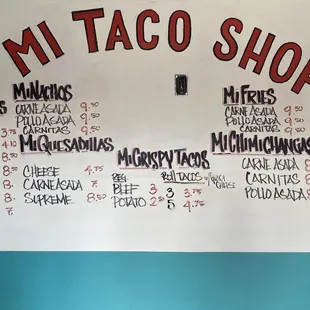 MI TACO SHOP
MiNACHOS
CARNE ASADA 9.50
POLLO ASADA 9.50
CARNITAS 9.50
MiQUESADILLAS
CHEESE 4.75
CARNEASADA 7.
SUPREME 8.50
3.75
4.10
8.50
8.
8.
8.
7.
MiCRISPY TACOS
REG. ROLL TACOS
BEEF 3 3 3.75
POTATO 2.50 5 4.75
MiFRIES
CARNE ASADA 9.50
POLLO ASADA 9.50
CARNITAS 9.50
MiCHIMICHANGAS
CARNE ASADA 8
CARNITAS 8
POLLO ASADA 8